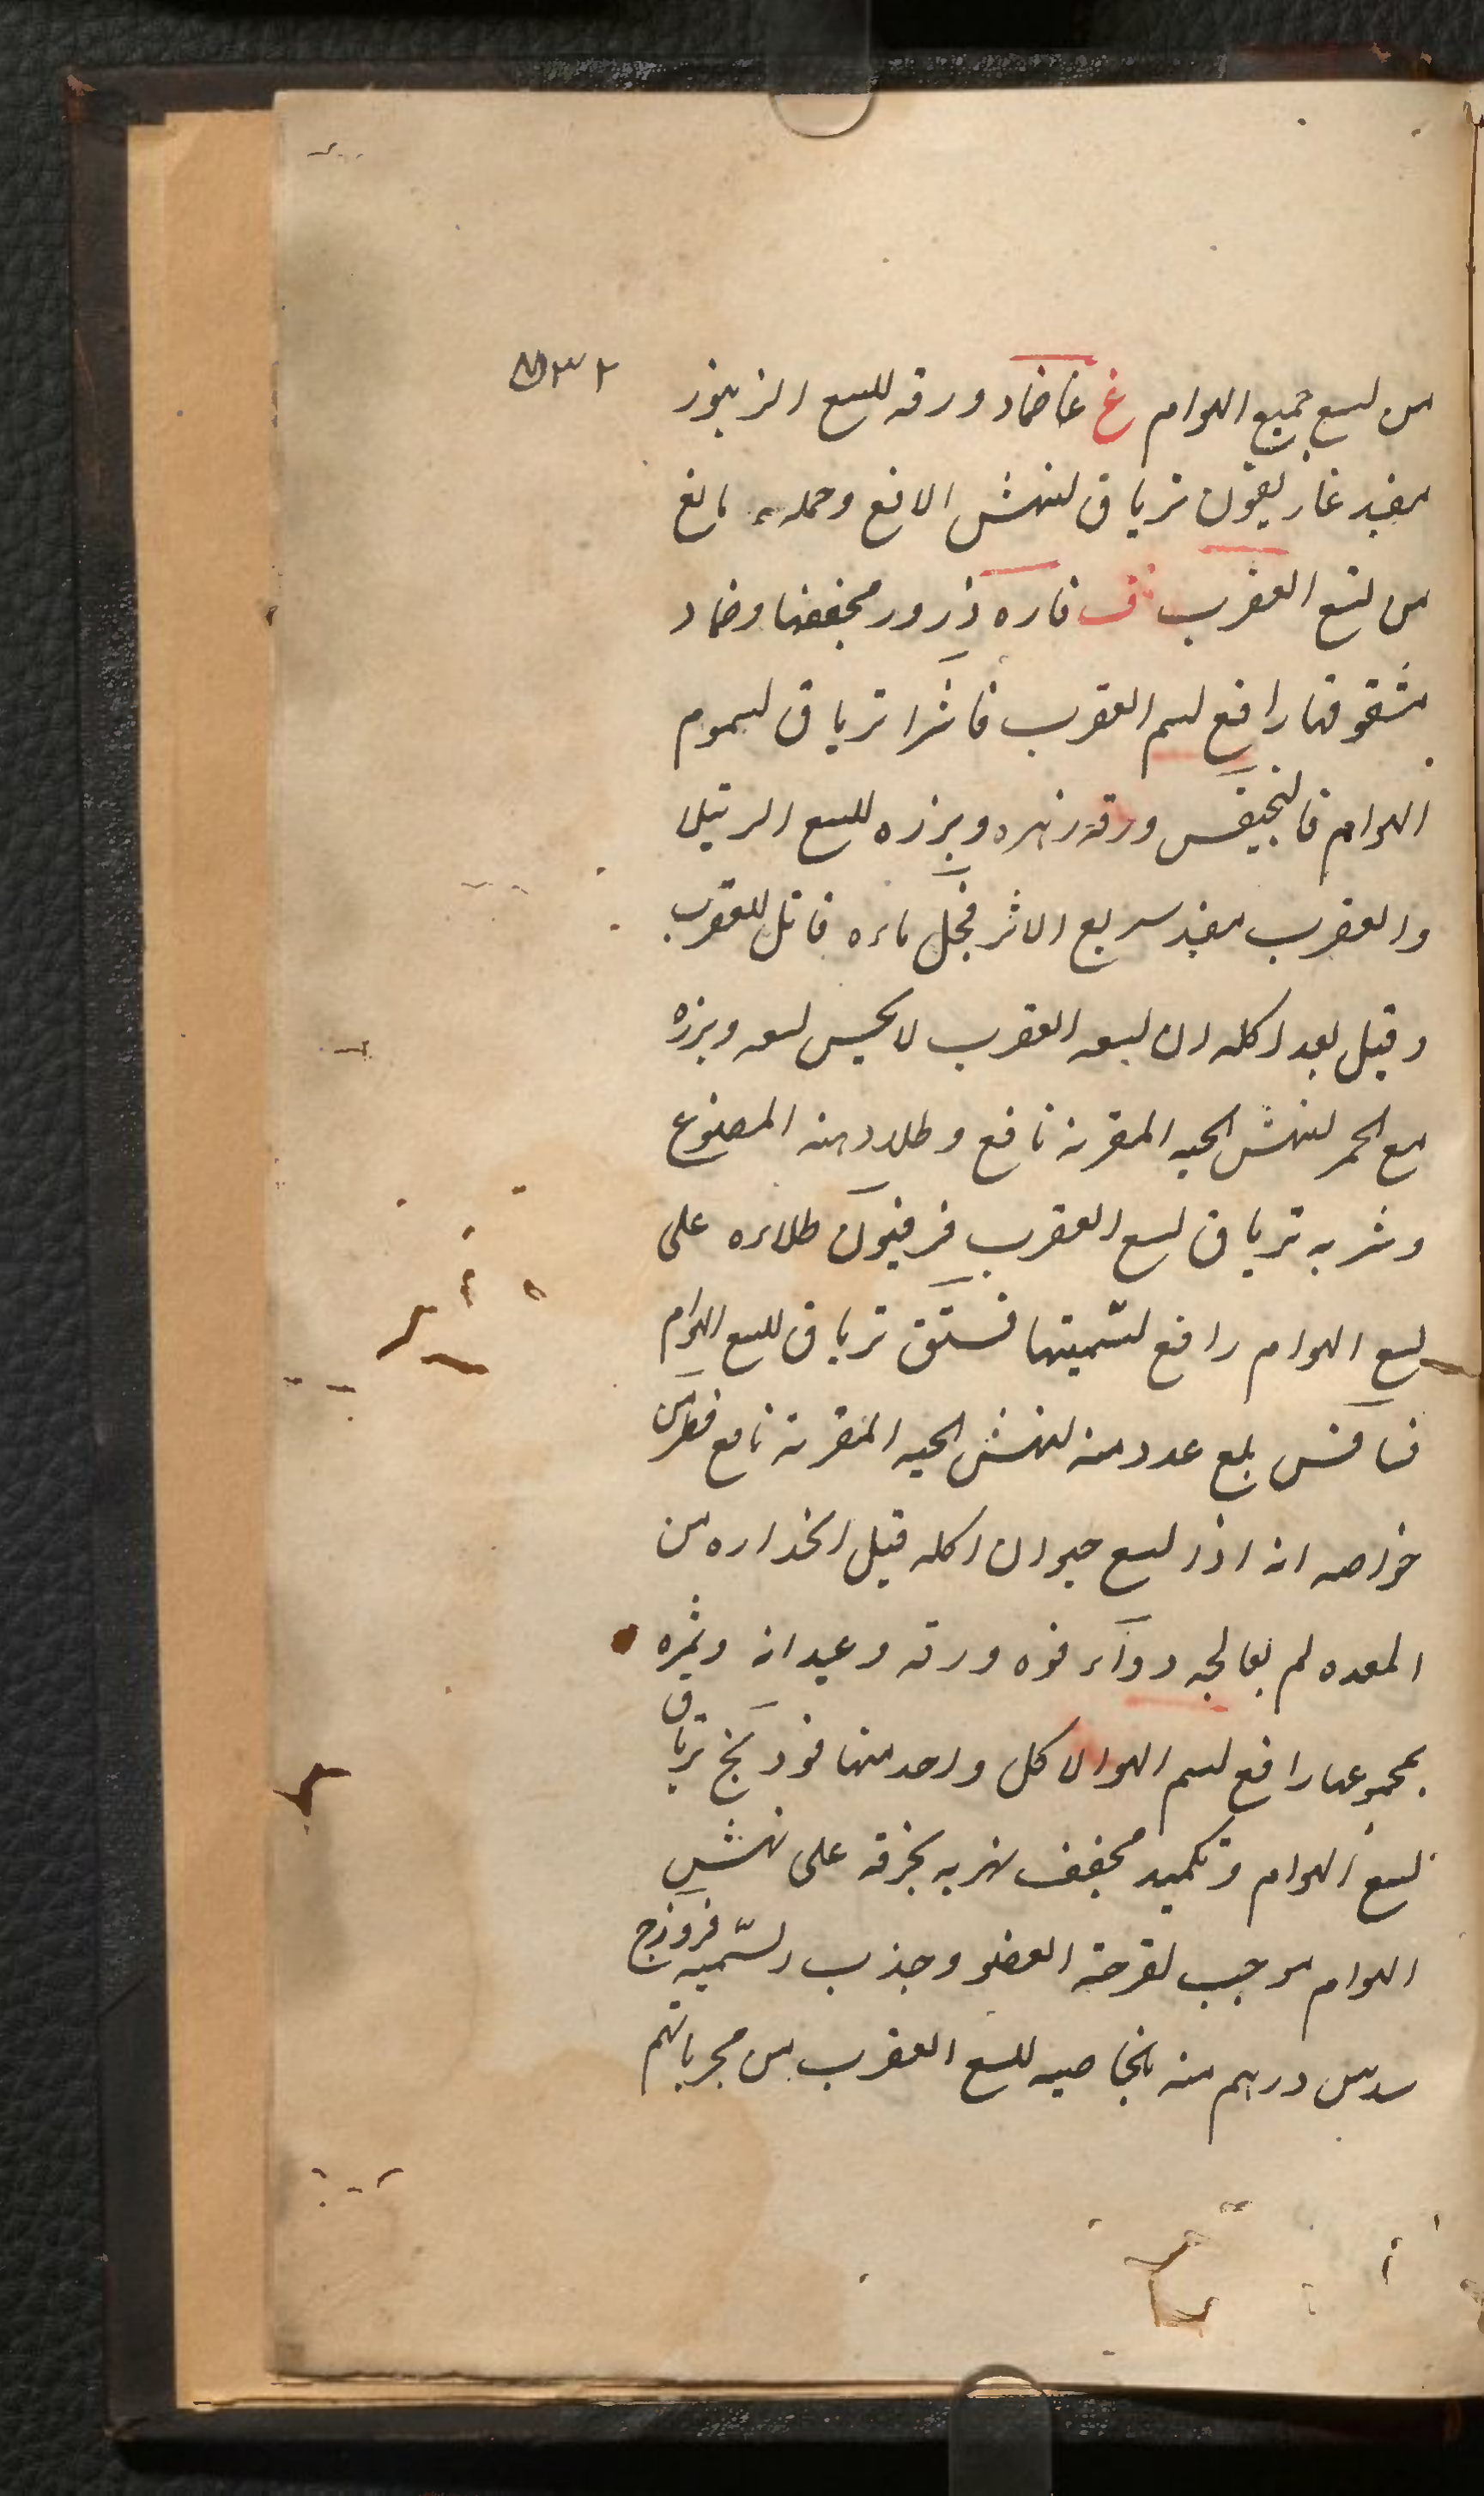 من لسع جميع الهوام غ غا ضماد ورقه للسع الزنبور
مفيد غاريقون ترياق لنهش الافع وحمله مانع
من لسع العقرب ف فاره ذرور مجففها وضماد
مشقوقها رافع لسم العقرب فاشرا ترياق لسموم
الهوام فالنجيقس ورقه زهره وبزره للسع الرتيلا
والعقرب مفيد سريع الاثر فجل ماءه قاتل للعقرب
وقيل بعد اكله ان لسعه العقرب لا يحس لسعه وبزره
مع الخمر لنهش الحيه المقرنه نافع وطلاء دهنه المصنوع
وشربه ترياق لسع العقرب فرفيون طلاءه على
لسع الهوام رافع لسميتها فستق ترياق للسع الهوام
فسافس بلع عدد منه لنهش الحيه المقرنه نافع من
خواصه انه اذا لسع حيوان اكله قبل انحداره من
المعده لم يعالجه دواء فوه ورقه وعيدانه وثمره
بمجموعها رافع لسم الهوام لا كل واحد منها فودنج ترياق
لسع الهوام وتكميد مجفف بخرقه على نهش
الهوام موجب لقرحة العضو وجذب السميه فروزج
سدس درهم منه بالخاصيه للسع العقرب من مجرباتهم